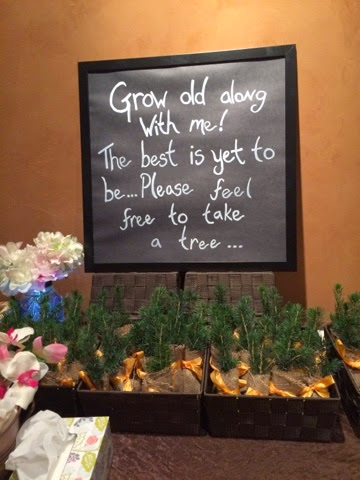 Grow old along
With me!
The best is yet to
be...Please feel
free to take
a tree...